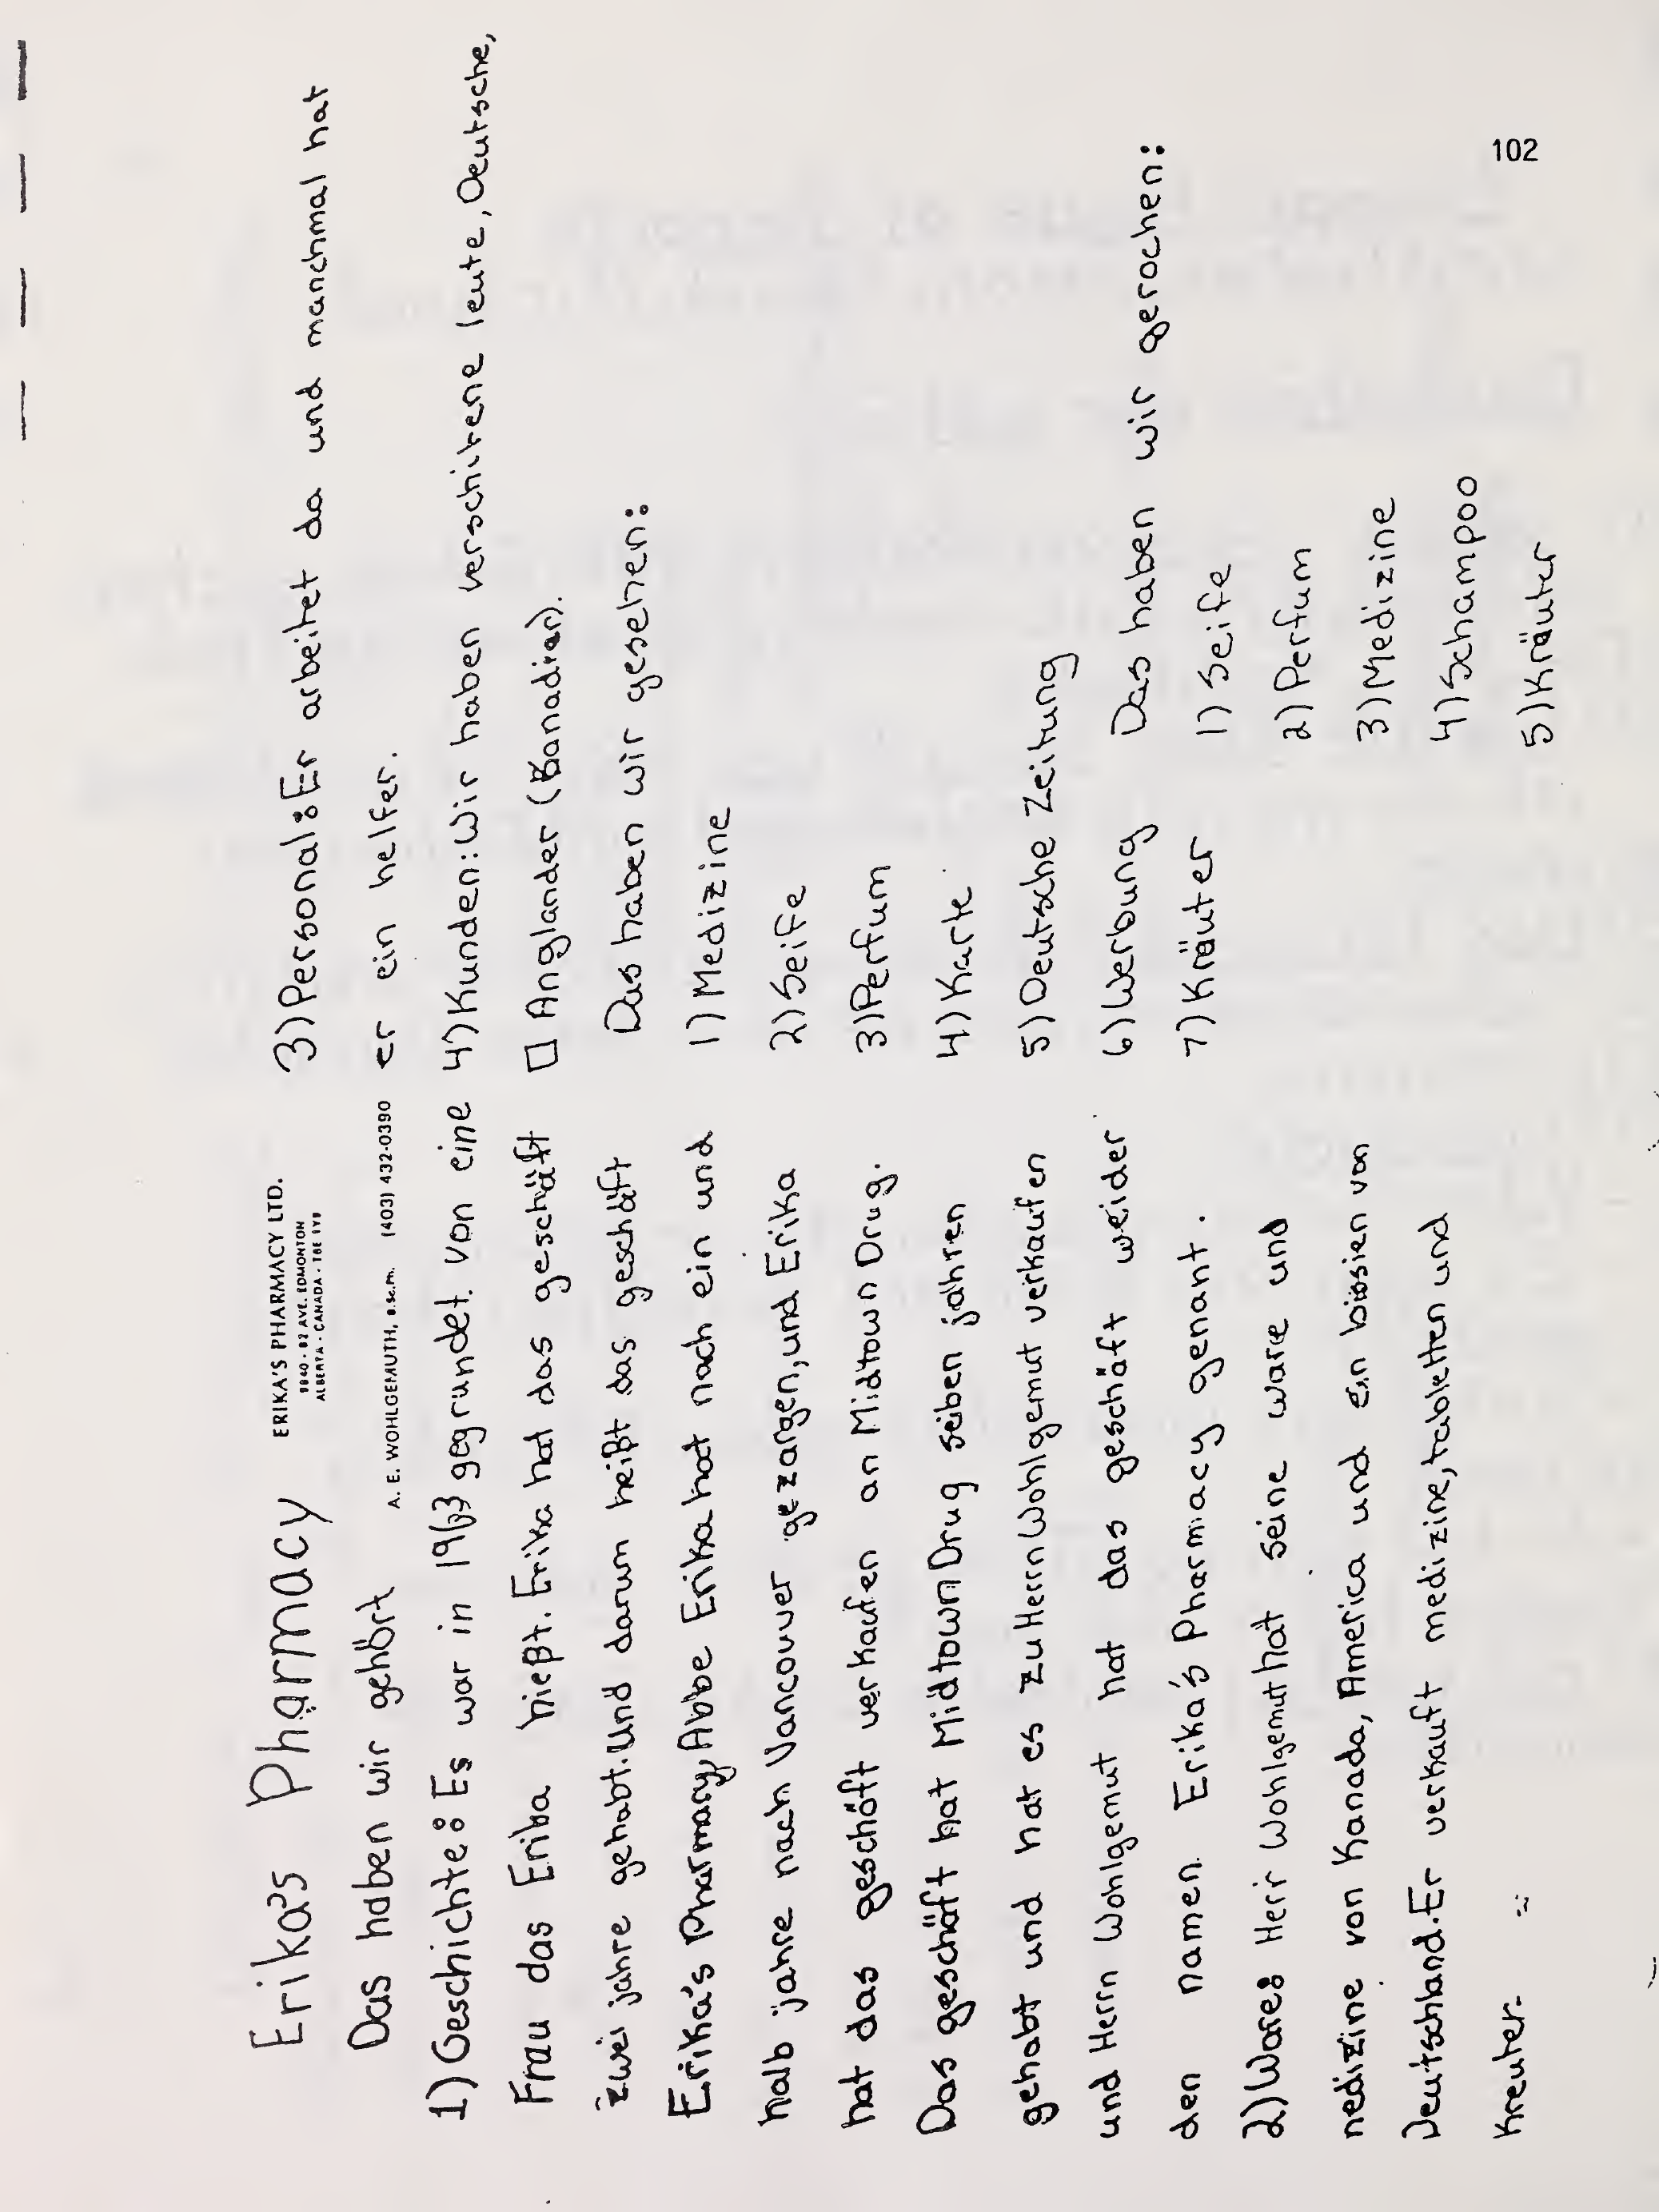 Erika's Pharmacy
ERIKA'S PHARMACY LTD.
9840 - 82 AVE. EDMONTON
ALBERTA - CANADA - T6E 1Y9
A. E. WOHLGEMUTH, B.Sc.Ph. (403) 432-0390
Das haben wir gehört
1) Geschichte: Es war in 1963 gegründet von eine
Frau das Erika hießt. Erika hat das geschäft
zwei jahre gehabt. Und darum heißt das geschäft
Erika's Pharmacy, Abbe Erika hat nach ein und
halb jahre nach Vancouver gezargen, und Erika
hat das geschäft verkaufen an Midtown Drug.
Das geschäft hat Midtown Drug seiben jahren
gehabt und hat es zu Herrn Wohlgemut verkaufen
und Herrn Wohlgemut hat das geschäft weider
den namen Erika's Pharmacy genant.
2) Ware: Herr Wohlgemut hat seine ware und
medizine von Kanada, America und ein bissien von
Deutschland. Er verkauft medizine, tabletten und
Kreuter.
3) Personal: Er arbeitet da und manchmal hat
er ein helfer.
4) Kunden: Wir haben verschitene leute, Deutsche,
Anglander (Kanadien).
Das haben wir gesehen:
1) Medizine
2) Seife
3) Perfum
4) Karte
5) Deutsche Zeitung
6) Werbung
7) Kräuter
Das haben wir gerochen:
1) Seife
2) Perfum
3) Medizine
4) Schampoo
5) Kräuter
102